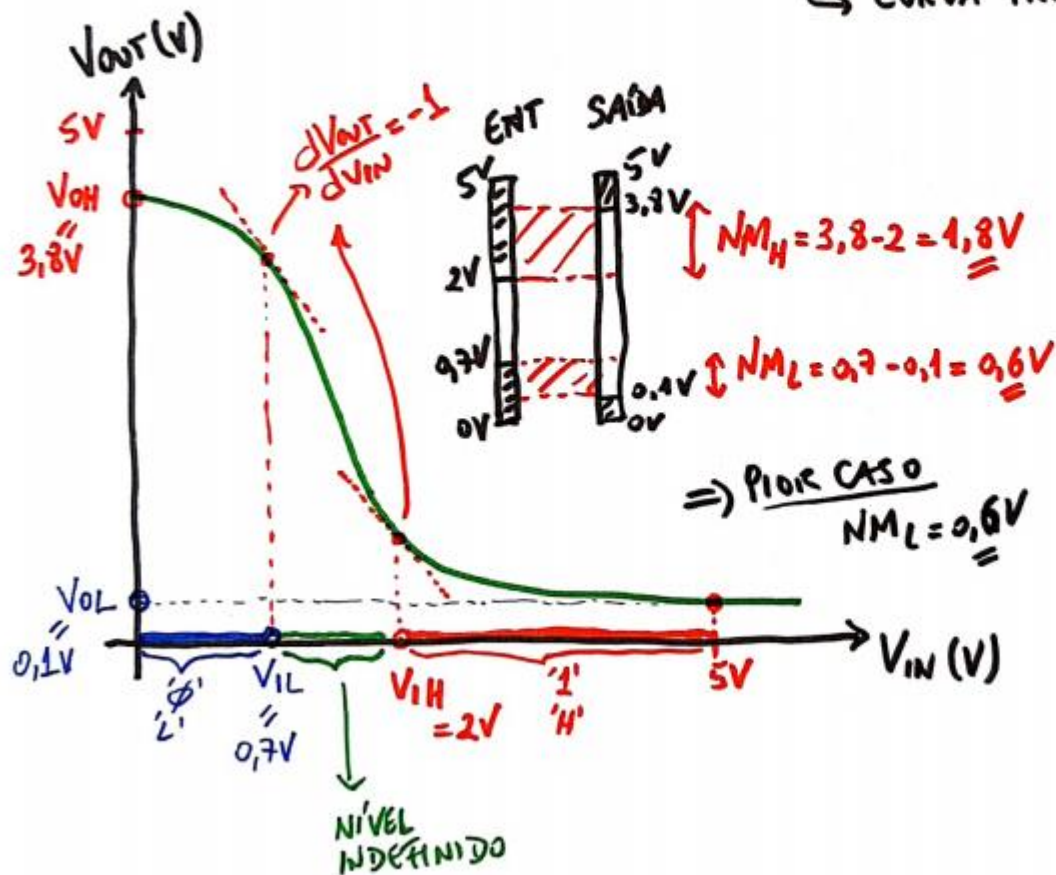 ↳ CURVA
VOUT (V)
5V
VOH
=
3,8V
dVOUT/dVIN = -1
ENT SAÍDA
5V 5V
3,8V
2V
0,7V
0,1V
0V 0V
NMH = 3,8-2 = 1,8V
NML = 0,7-0,1 = 0,6V
=> PIOR CASO
NML = 0,6V
VOL
=
0,1V
'0'
'L'
VIL
=
0,7V
VIH
= 2V
'1'
'H'
5V
VIN (V)
NÍVEL
INDEFINIDO